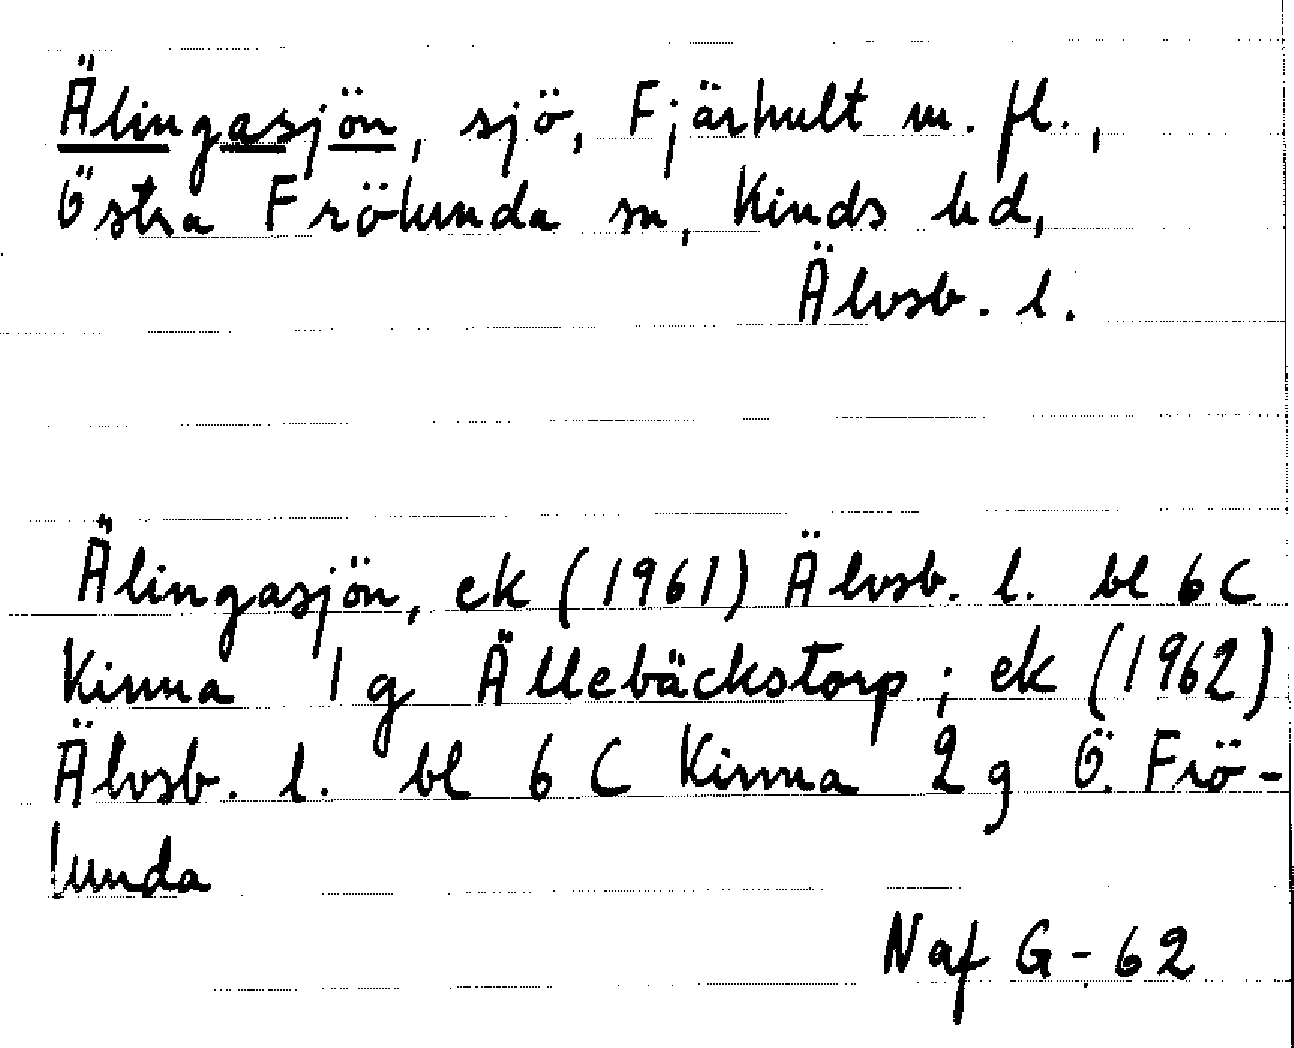 Älingasjön, sjö, Fjärhult m. fl.,
Östra Frölunda sn, Kinds hd,
Älvsb. l.
Älingasjön, ek (1961) Älvsb. l. bl 6 C
Kinna 1 g Ällebäckstorp; ek (1962)
Älvsb. l. bl 6 C Kinna 2 g Ö. Frö-
lunda
Naf G-62